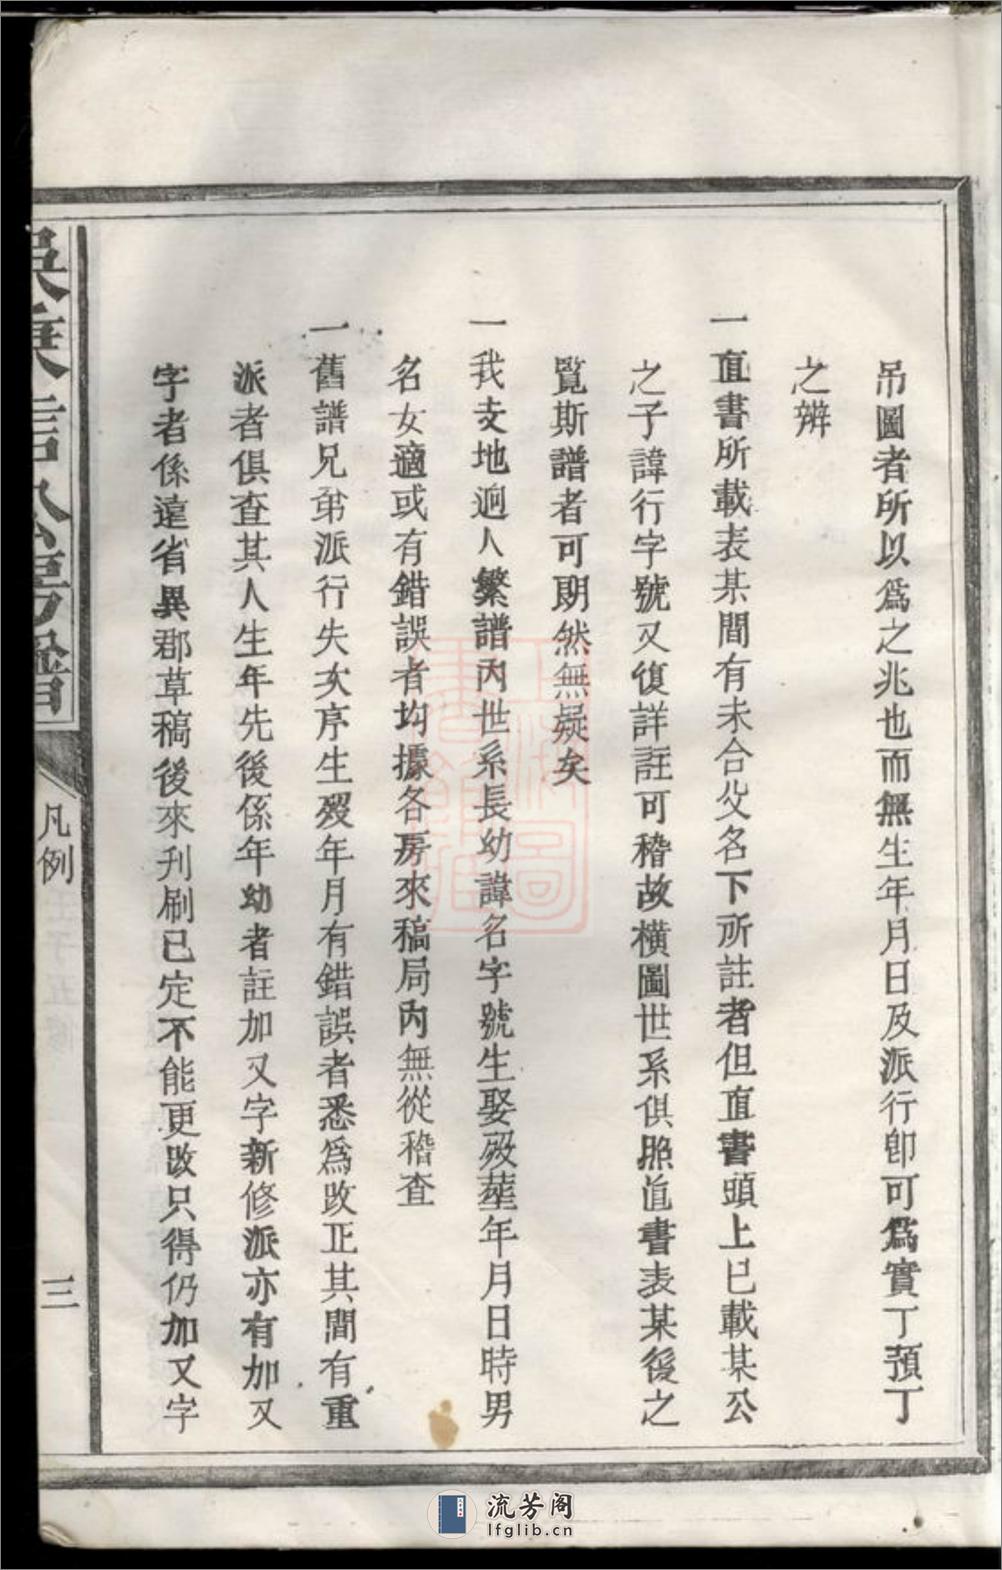 吊圖者所以爲之兆也而無生年月日及派行卽可爲實丁預丁
之辨
一直書所載表某間有未合父名下所註者但直書頭上已載某公
之子諱行字號又復詳註可稽故橫圖世系俱照直書表某後之
覧斯譜者可朗然無疑矣
一我支地逈人繁譜內世系長幼諱名字號生娶歿塟年月日時男
名女適或有錯誤者均據各房來稿局內無從稽查
一舊譜兄弟派行失次序生歿年月有錯誤者悉爲改正其間有重
派者俱查其人生年先後係年幼者註加又字新修派亦有加又
字者係遠省異郡草稿後來刋刷已定不能更改只得仍加又字
凡例
三
流芳阁
lfglib.cn